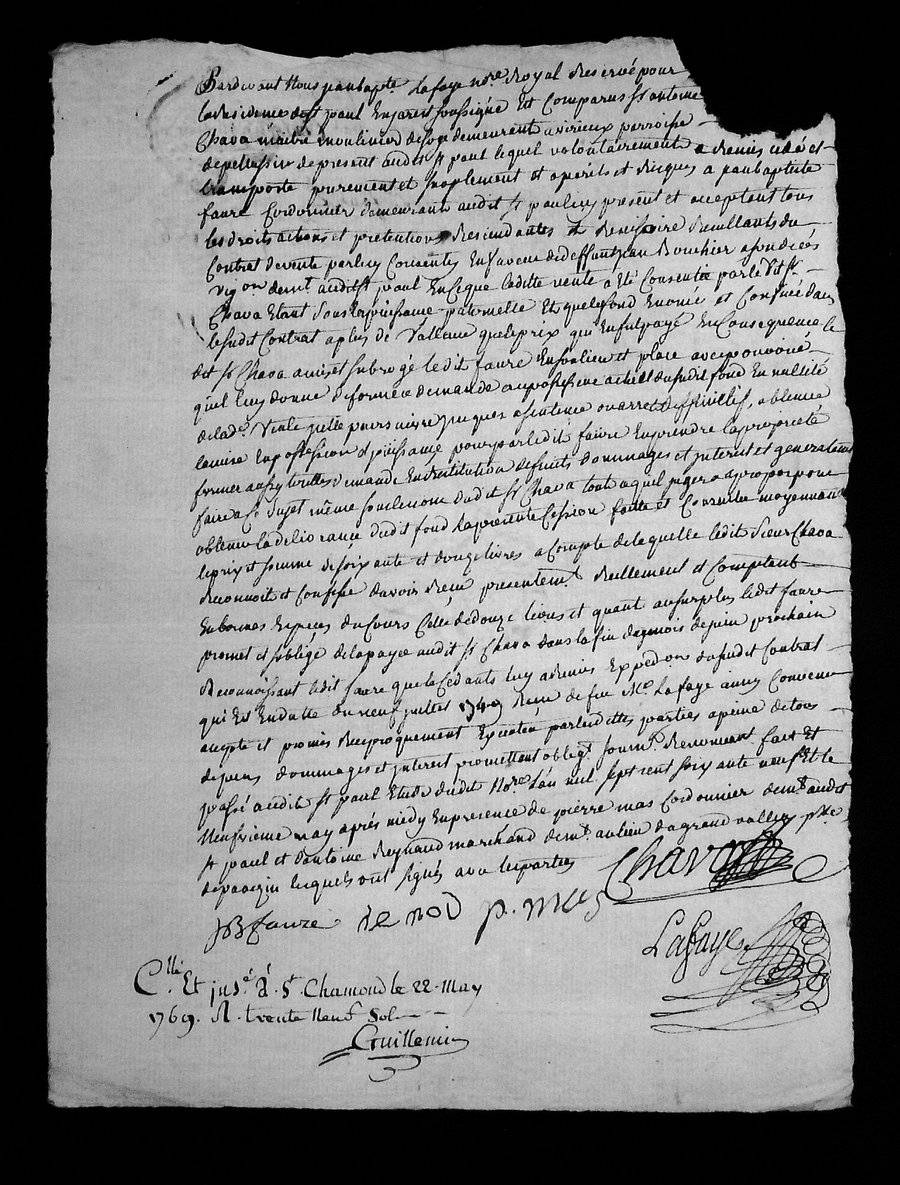 Pardevant Nous jeanbapte. Lafaye nore. Royal Reservé pour
la Residence de st paul Enjarest soussigné Et Comparus sr antoine
Chava maitre moulinier de soye demeurant a virieux parroisse
de pellussin de present audit st paul lequel volontairement a remis cedé et
transporté purement et simplement et aperils et risques a jeanbaptiste
faure Cordonnier demeurant audit st paul icy present et acceptant tous
les droits actions et pretentions Rescindantes et Rescisoire Resultants du
Contrat de vente par luy Consentie En faveur de deffunt jean Bouchier
demt. audit st paul En ce que ladite vente a Eté Consentie par ledit sr
Chava Etant sous la puissance paternelle Et que le fond Enoncé et Confiné dans
le sudit Contrat a plus de Valleur que le prix qui En fut payé En Consequence le
dit sr Chava a mis et subrogé ledit faure En son lieu et place avec pouvoir
qu'il luy donne de former demande au possesseur actuel dudit fond En nullité
de lade. Vente jcelle poursuivre jusques a sentence ou arret deffinitif, obtenir
la mise En possession et jouissance pour par ledit faure En prendre la proprieté
former aussy toutes demande En restitution de fruits dommages et jnterest et generalement
faire a Ce sujet même sous le nom dudit sr Chava tout a quel jugera a propos pour
obtenir la delivrance dudit fond la presente Cession faite et Consentie moyennant
le prix et somme de soixante et douze livres a Compte de laquelle ledit sieur Chava
Reconnoit et Confesse d'avoir Reçu presentemt. Reellement et Comptant
En bonnes Especes du Cours Celle de douze livres et quant au surplus ledit faure
promet et s'oblige de la payer audit sr Chava dans la fin du mois de juin prochain
Reconnoissant ledit faure que le Cedant luy a remis Expedon. du sudit Contrat
qui Est En datte du neuf juillet 1749 Reçu de feu Me. Lafaye ainsy Convenu
accepté et promis Reciproquement Executer par lesdittes parties a peine de tous
depens dommages et jnterest promettant obligt. soumt. Renonceant fait Et
passé audit st paul Etude dudit Nore. L'an mil sept cent soixante neuf Et le
Neufvieme may après midy En presence de pierre mas Cordonnier demt. audit
st paul et d'antoine Reynaud marchand demt. au lieu de la grand valley psse.
de pavezin lesquels ont signés avec les parties
Chava
JB faure p. mas
Lafaye
Cllé. Et jnsé. à St Chamond le 22 May
1769. R. trente Neuf Sols
Guillemin